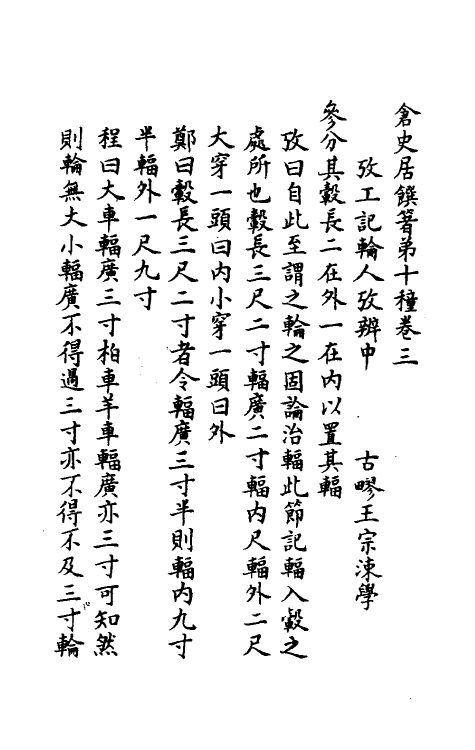 倉史居饌箸弟十種卷三
攷工記輪人攷辨中　古疁王宗涑學
參分其轂長二在外一在内以置其輻
攷曰自此至謂之輪之固論治輻此節記輻入轂之
處所也轂長三尺二寸輻廣二寸輻内尺輻外二尺
大穿一頭曰内小穿一頭曰外
鄭曰轂長三尺二寸者令輻廣三寸半則輻内九寸
半輻外一尺九寸
程曰大車輻廣三寸柏車羊車輻廣亦三寸可知然
則輪無大小輻廣不得過三寸亦不得不及三寸輪